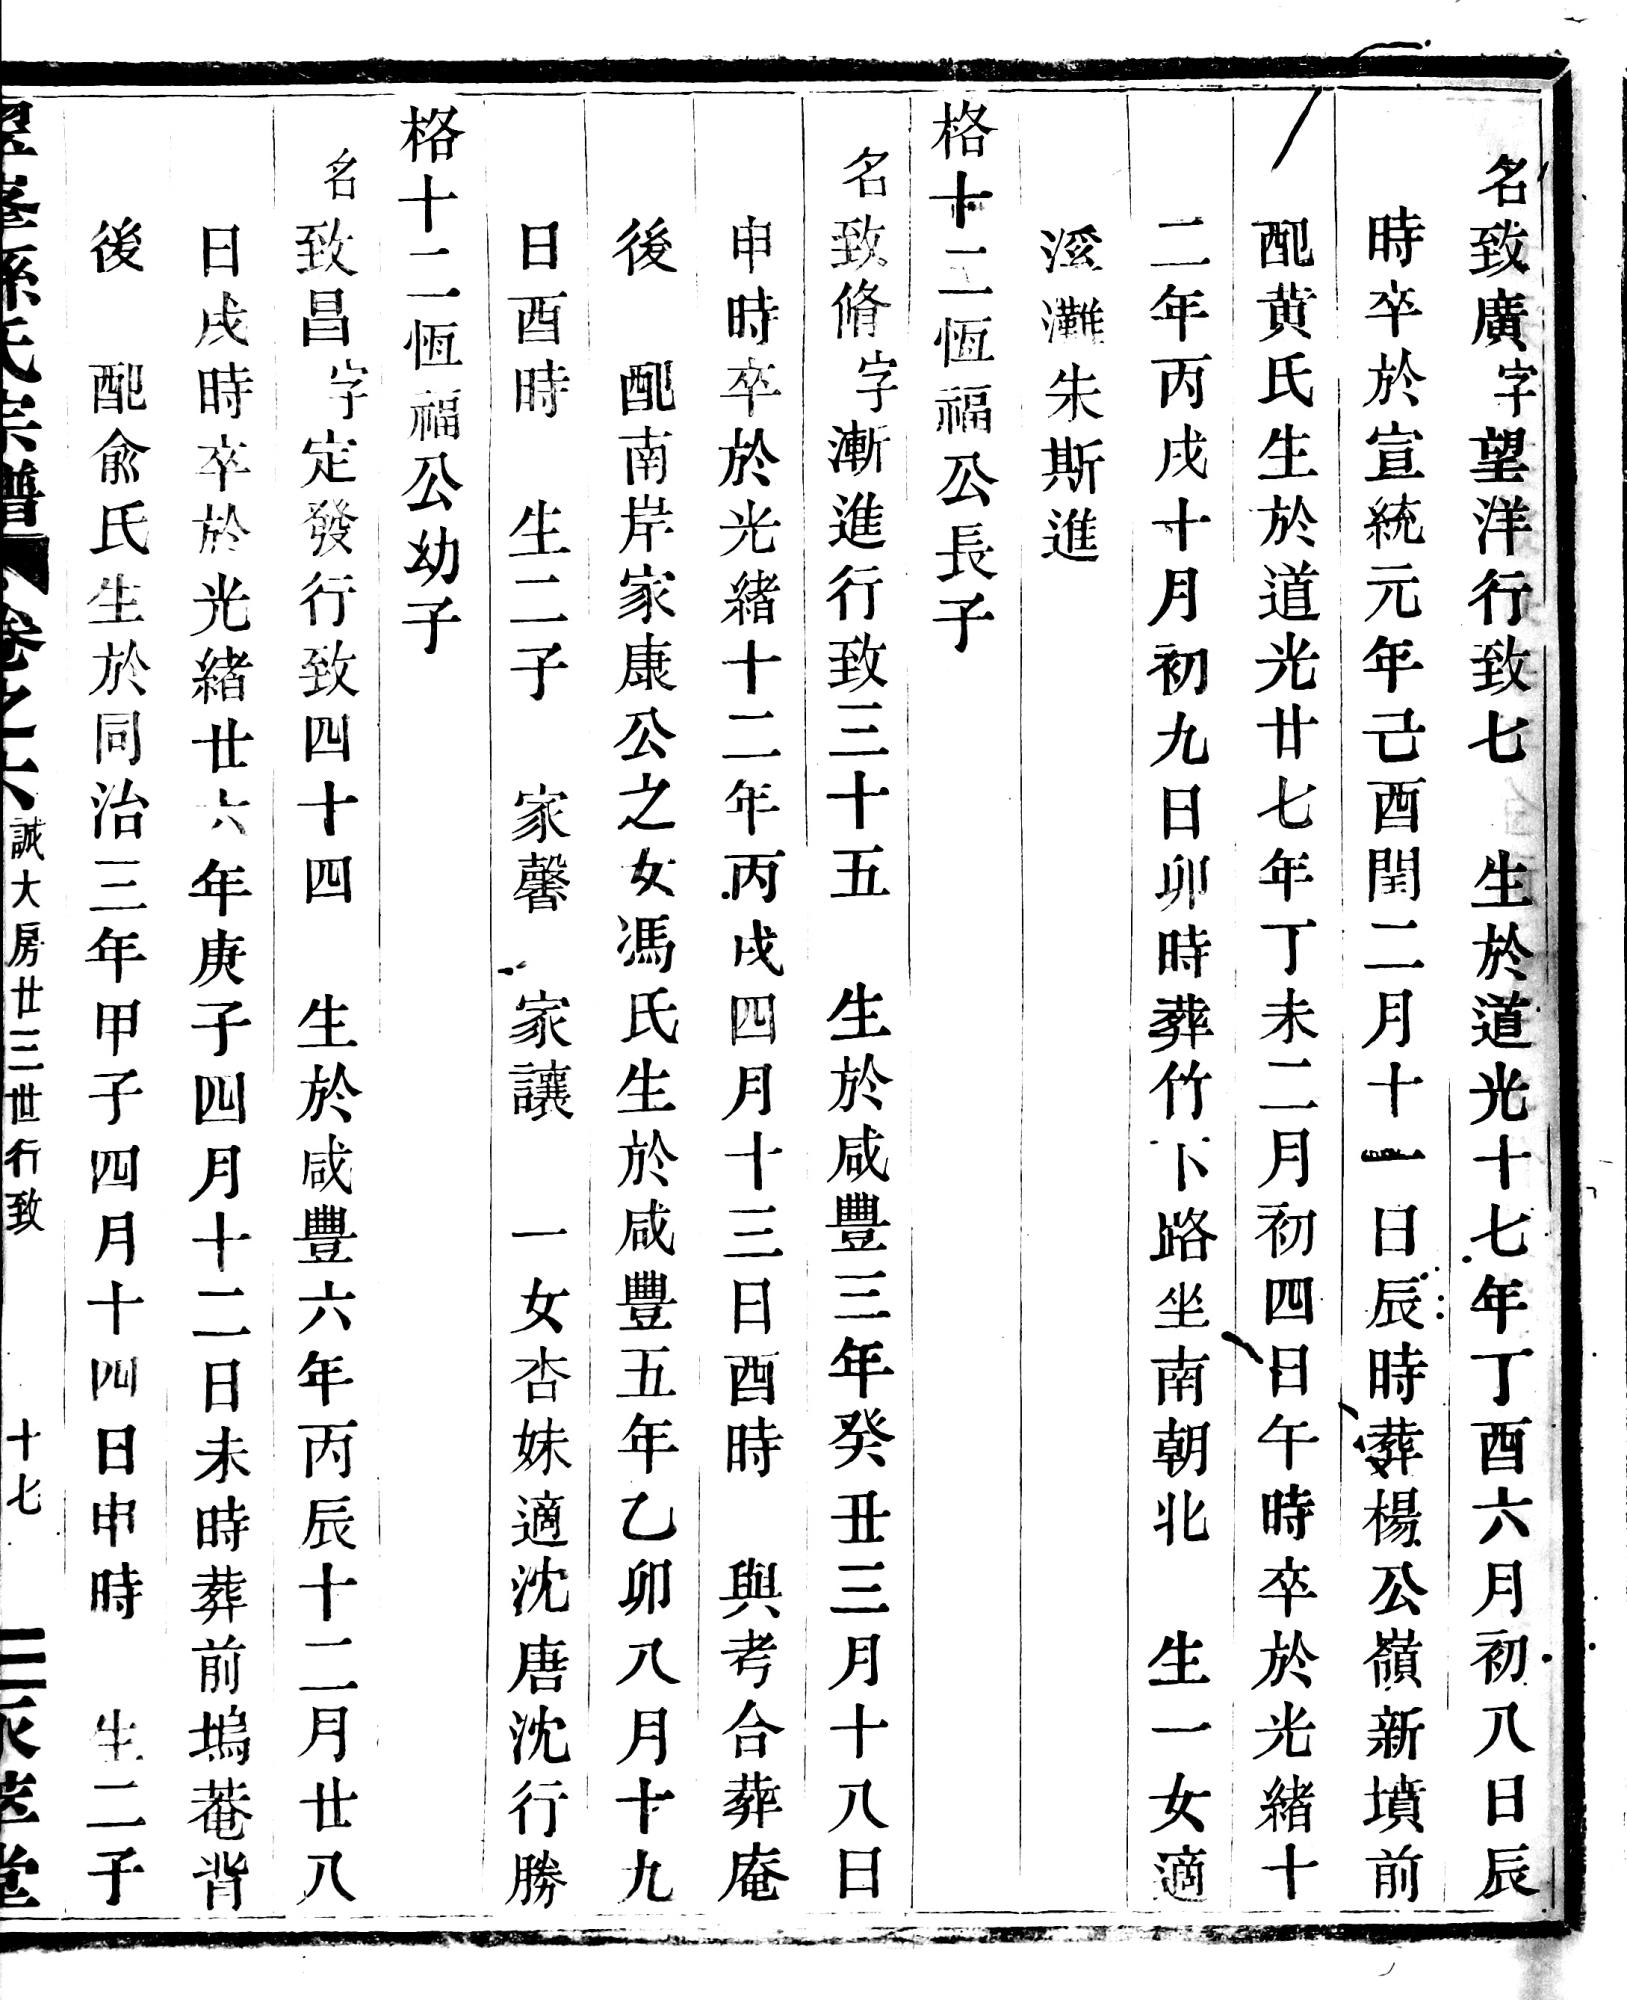 名致廣字望洋行致七 生於道光十七年丁酉六月初八日辰
時卒於宣統元年己酉閏二月十一日辰時葬楊公嶺新墳前
配黄氏生於道光廿七年丁未二月初四日午時卒於光緒十
二年丙戌十月初九日卯時葬竹下路坐南朝北 生一女適
溪灘朱斯進
格十二恆福公長子
名致脩字漸進行致三十五 生於咸豐三年癸丑三月十八日
申時卒於光緒十二年丙戌四月十三日酉時 與考合葬庵
後 配南岸家康公之女馮氏生於咸豐五年乙卯八月十九
日酉時 生二子 家馨 家讓 一女杏妹適沈唐沈行勝
格十二恆福公幼子
名致昌字定發行致四十四 生於咸豐六年丙辰十二月廿八
日戌時卒於光緒廿六年庚子四月十二日未時葬前塢菴背
後 配俞氏生於同治三年甲子四月十四日申時 生二子
孫氏宗譜 卷之六 誠大房廿三世行致 十七 堂